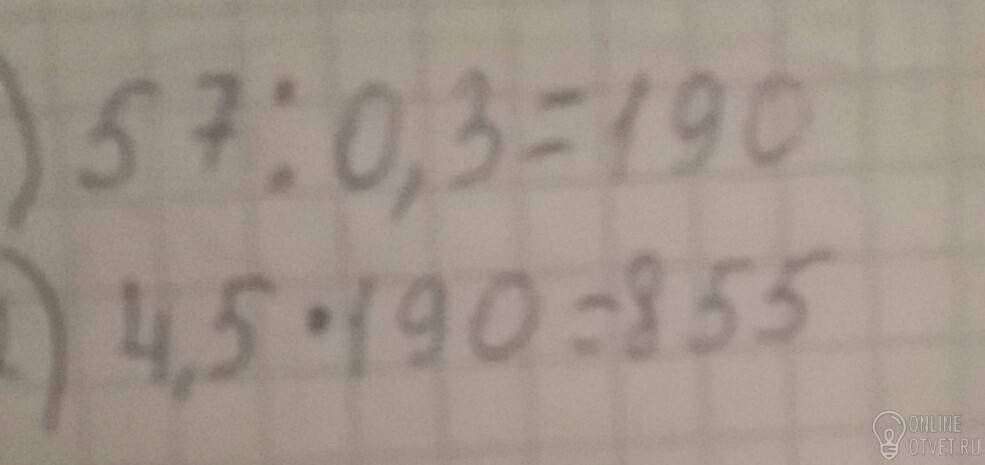 ) 57 : 0,3 = 190
) 4,5 · 190 = 855
ONLINE
OTVET.RU